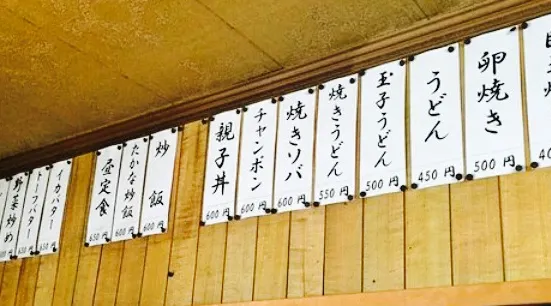 卵焼き 500円
うどん 450円
玉子うどん 500円
焼きうどん 550円
焼きソバ 600円
チャンポン 600円
親子丼 600円
炒飯 600円
たかな炒飯 600円
昼定食 650円
イカバター
トーフバター
野菜炒め